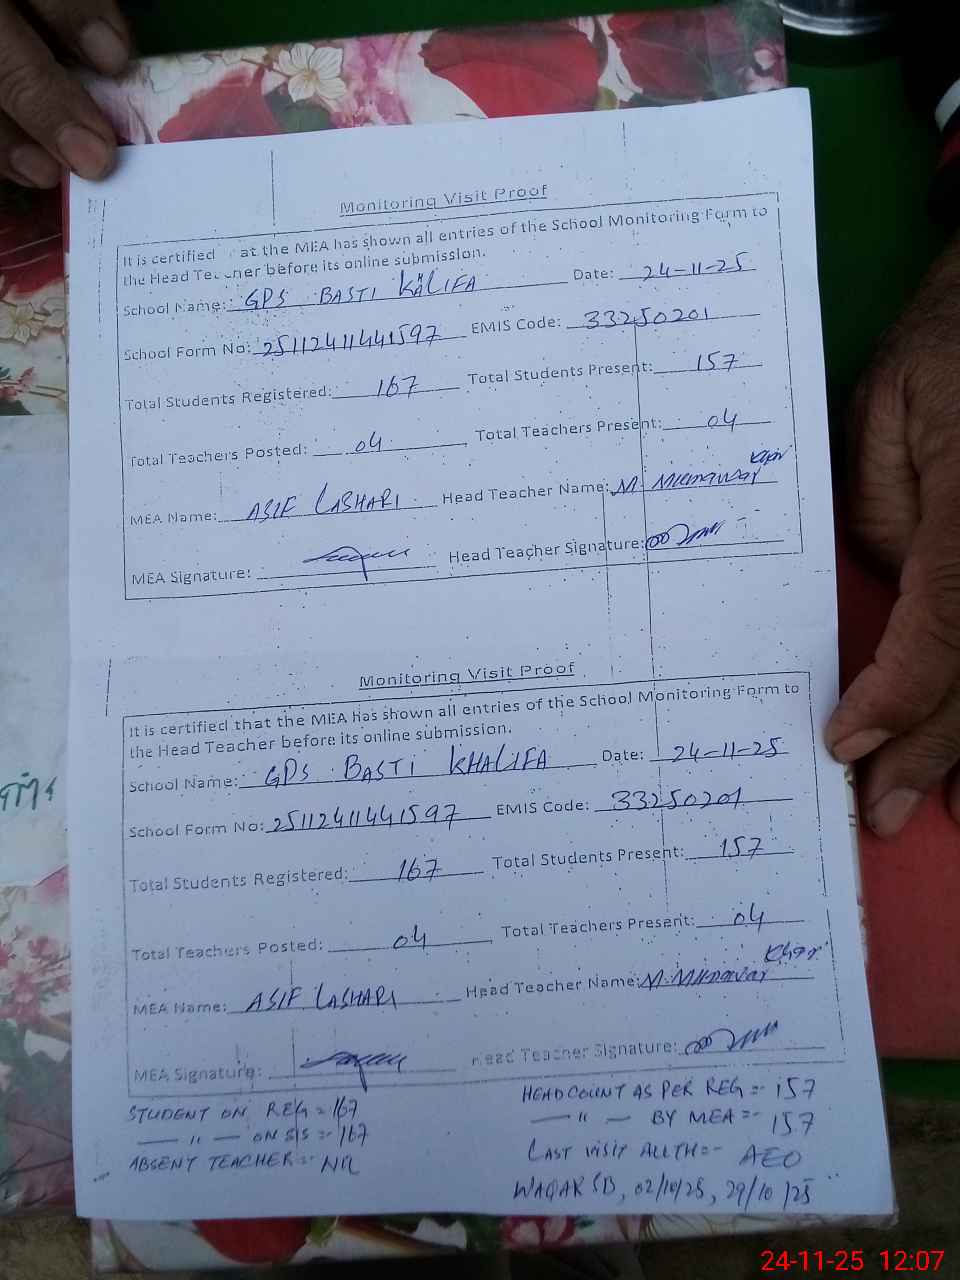 Monitoring Visit Proof
It is certified at the MEA has shown all entries of the School Monitoring Form to
the Head Teacher before its online submission.
School Name: GPS BASTI KALIFA Date: 24-11-25
School Form No: 2511241441597 EMIS Code: 33250201
Total Students Registered: 167 Total Students Present: 157
Total Teachers Posted: 04 Total Teachers Present: 04
MEA Name: ASIF LASHARI Head Teacher Name: M. Munawar Khan
MEA Signature: Head Teacher Signature:
Monitoring Visit Proof
It is certified that the MEA has shown all entries of the School Monitoring Form to
the Head Teacher before its online submission.
School Name: GPS BASTI KHALIFA Date: 24-11-25
School Form No: 2511241441597 EMIS Code: 33250201
Total Students Registered: 167 Total Students Present: 157
Total Teachers Posted: 04 Total Teachers Present: 04
MEA Name: ASIF LASHARI Head Teacher Name: M. Munawar Khan
MEA Signature: Head Teacher Signature:
STUDENT ON REG = 167 HEADCOUNT AS PER REG =- 157
— " — ON SIS =- 167 — " — BY MEA =- 157
ABSENT TEACHER =- NIL LAST VISIT AUTH =- AEO
WAQAR SB, 02/10/25, 29/10/25
24-11-25 12:07